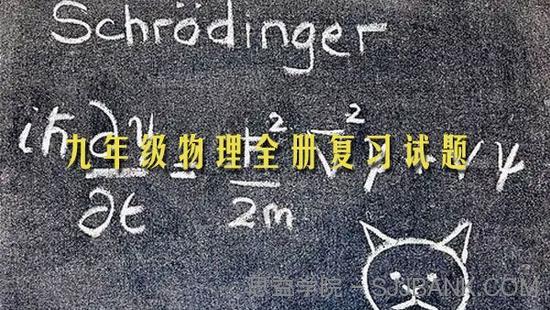 Schrödinger
九年级物理全册复习试题
iħ ∂ψ/∂t = ħ²/2m ∇²ψ + Vψ
思宙学院 - SJJBANK.COM